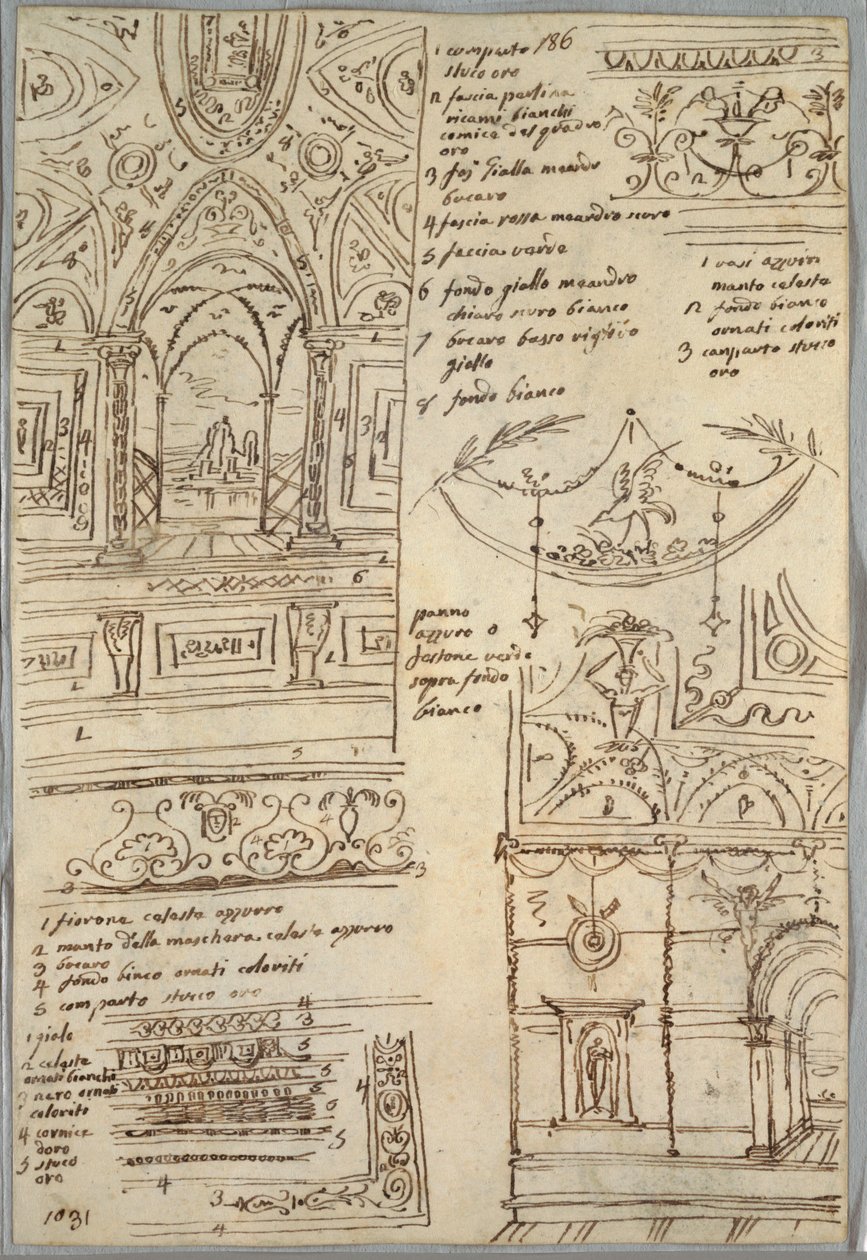 186
1 comparto
stuco oro
2 fascia paolina
ricami bianchi
cornice del quadro
oro
3 fas. Gialla meandro
bucaro
4 fascia rossa meandro scuro
5 faccia verde
6 fondo giallo meandro
chiaro scuro bianco
7 bucaro basso rigiro
giallo
8 fondo bianco
1 vasi azzuri
manto celeste
2 fondo bianco
ornati coloriti
3 comparto stucco
oro
panno
azzuro o
festone verde
sopra fondo
bianco
1 fiorone celeste azzurro
2 manto della maschera celeste azzurro
3 bucaro
4 fondo binco ornati coloriti
5 comparto stuco oro
1 gialo
2 celeste
ornati bianchi
3 nero ornati
colorito
4 cornice
doro
5 stuco
oro
1031